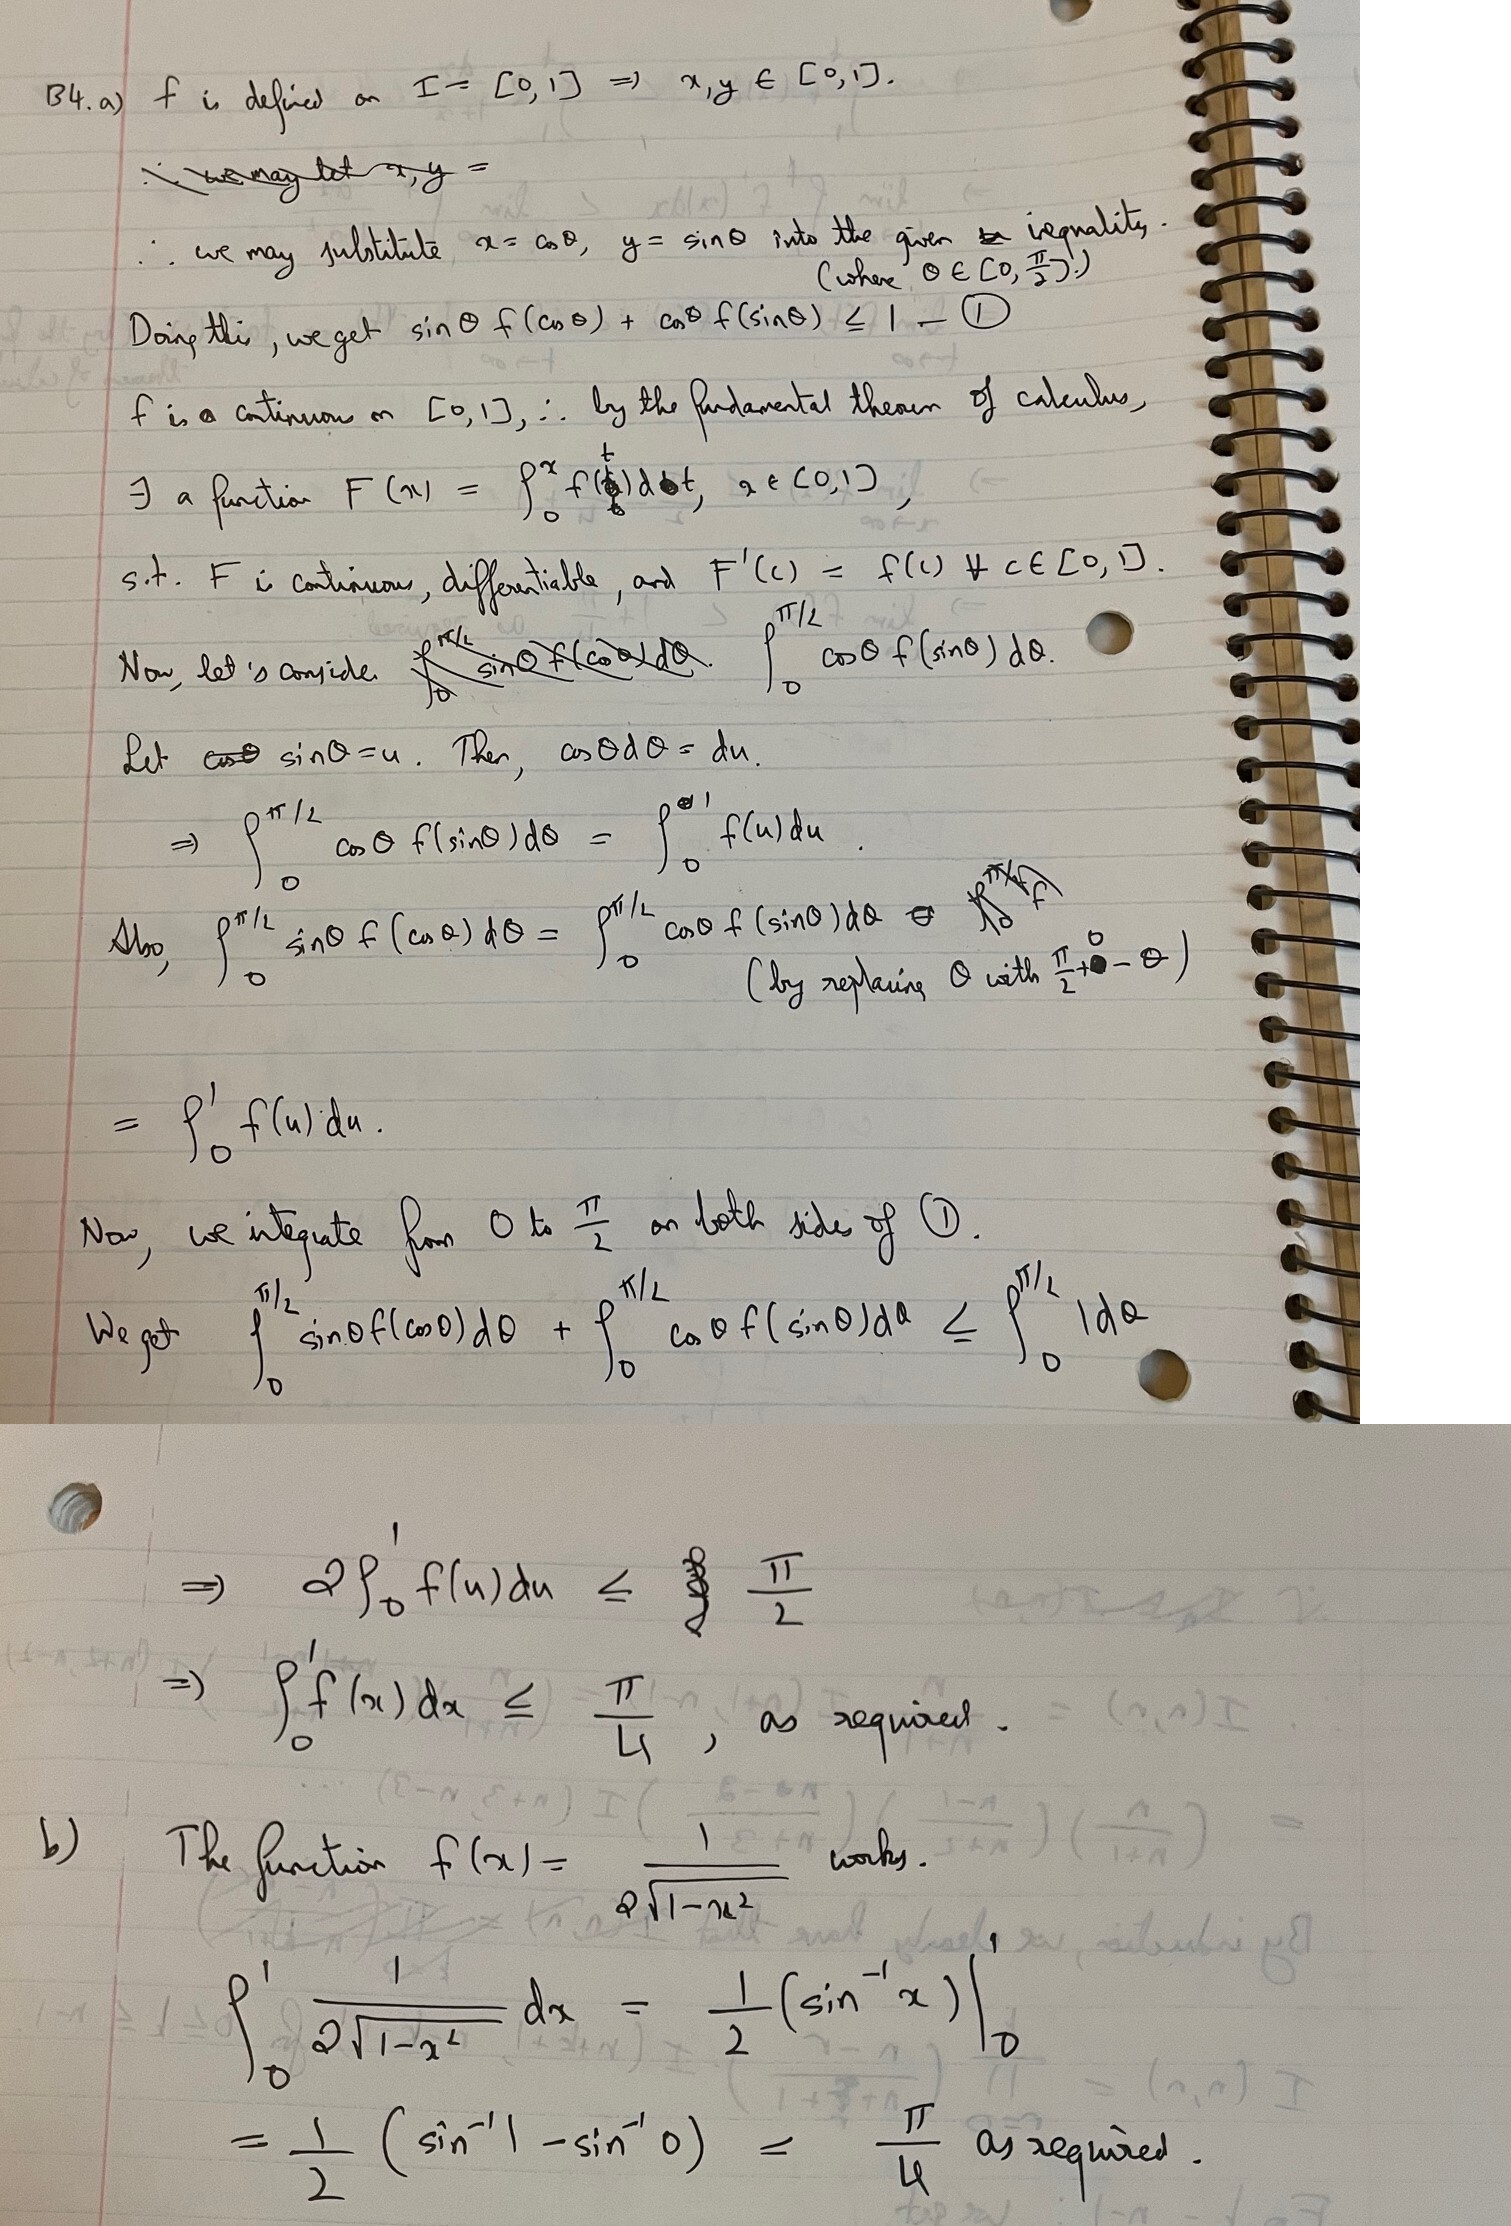 B4. a) f is defined on I = [0,1] ⇒ x,y ∈ [0,1].
∴ we may let x,y =
∴ we may substitute x = cosθ, y = sinθ into the given inequality.
(where θ ∈ [0, π/2].)
Doing this, we get sinθ f(cosθ) + cosθ f(sinθ) ≤ 1 — ①
f is continuous on [0,1], ∴ by the fundamental theorem of calculus,
∃ a function F(x) = ∫₀ˣ f(t)dt, x ∈ [0,1],
s.t. F is continuous, differentiable, and F'(c) = f(c) ∀ c ∈ [0,1].
Now, let's consider ∫₀^{π/2} sinθ f(cosθ)dθ. ∫₀^{π/2} cosθ f(sinθ) dθ.
Let cosθ sinθ = u. Then, cosθdθ = du.
⇒ ∫₀^{π/2} cosθ f(sinθ)dθ = ∫₀¹ f(u)du.
Also, ∫₀^{π/2} sinθ f(cosθ)dθ = ∫₀^{π/2} cosθ f(sinθ)dθ = ∫₀^{π/2} f
(by replacing θ with π/2 + 0 − θ)
= ∫₀¹ f(u)du.
Now, we integrate from 0 to π/2 on both sides of ①.
We get ∫₀^{π/2} sinθf(cosθ)dθ + ∫₀^{π/2} cosθ f(sinθ)dθ ≤ ∫₀^{π/2} 1dθ
⇒ 2∫₀¹ f(u)du ≤ π/2
⇒ ∫₀¹ f(x)dx ≤ π/4, as required.
b) The function f(x) = 1/(2√(1−x²)) works.
∫₀¹ 1/(2√(1−x²)) dx = 1/2 (sin⁻¹x)|₀¹
= 1/2 (sin⁻¹1 − sin⁻¹0) = π/4 as required.